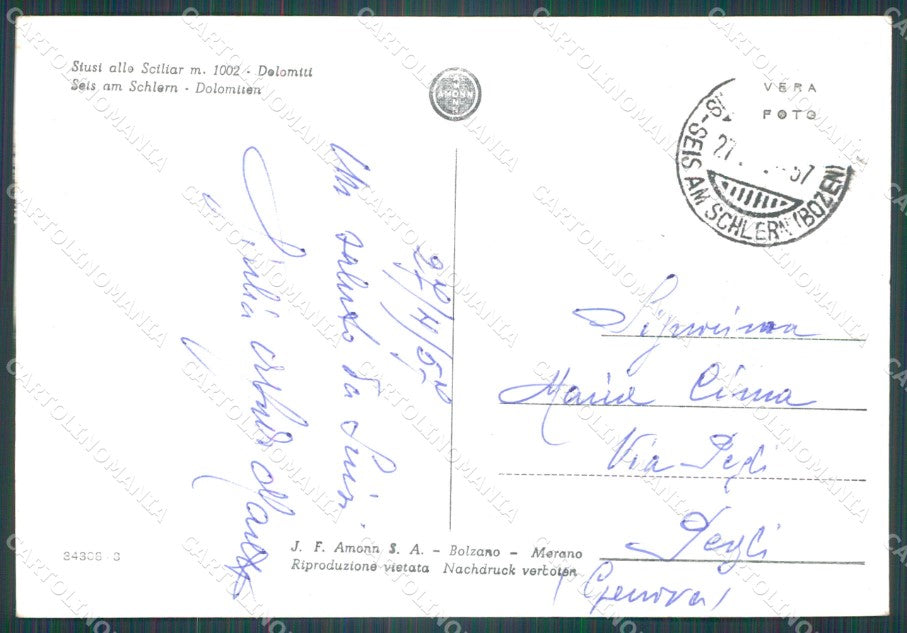 Siusi allo Sciliar m. 1002 - Dolomiti
Seis am Schlern - Dolomiten
AMONN
VERA
FOTO
SEIS AM SCHLERN (BOZEN)
27
57
27/4/57
Un saluto da Siusi
Signorina
Maria Cima
Via Pegli
Pegli
(Genova)
J. F. Amonn S. A. - Bolzano - Merano
Riproduzione vietata Nachdruck verboten
CARTOLINOMANIA